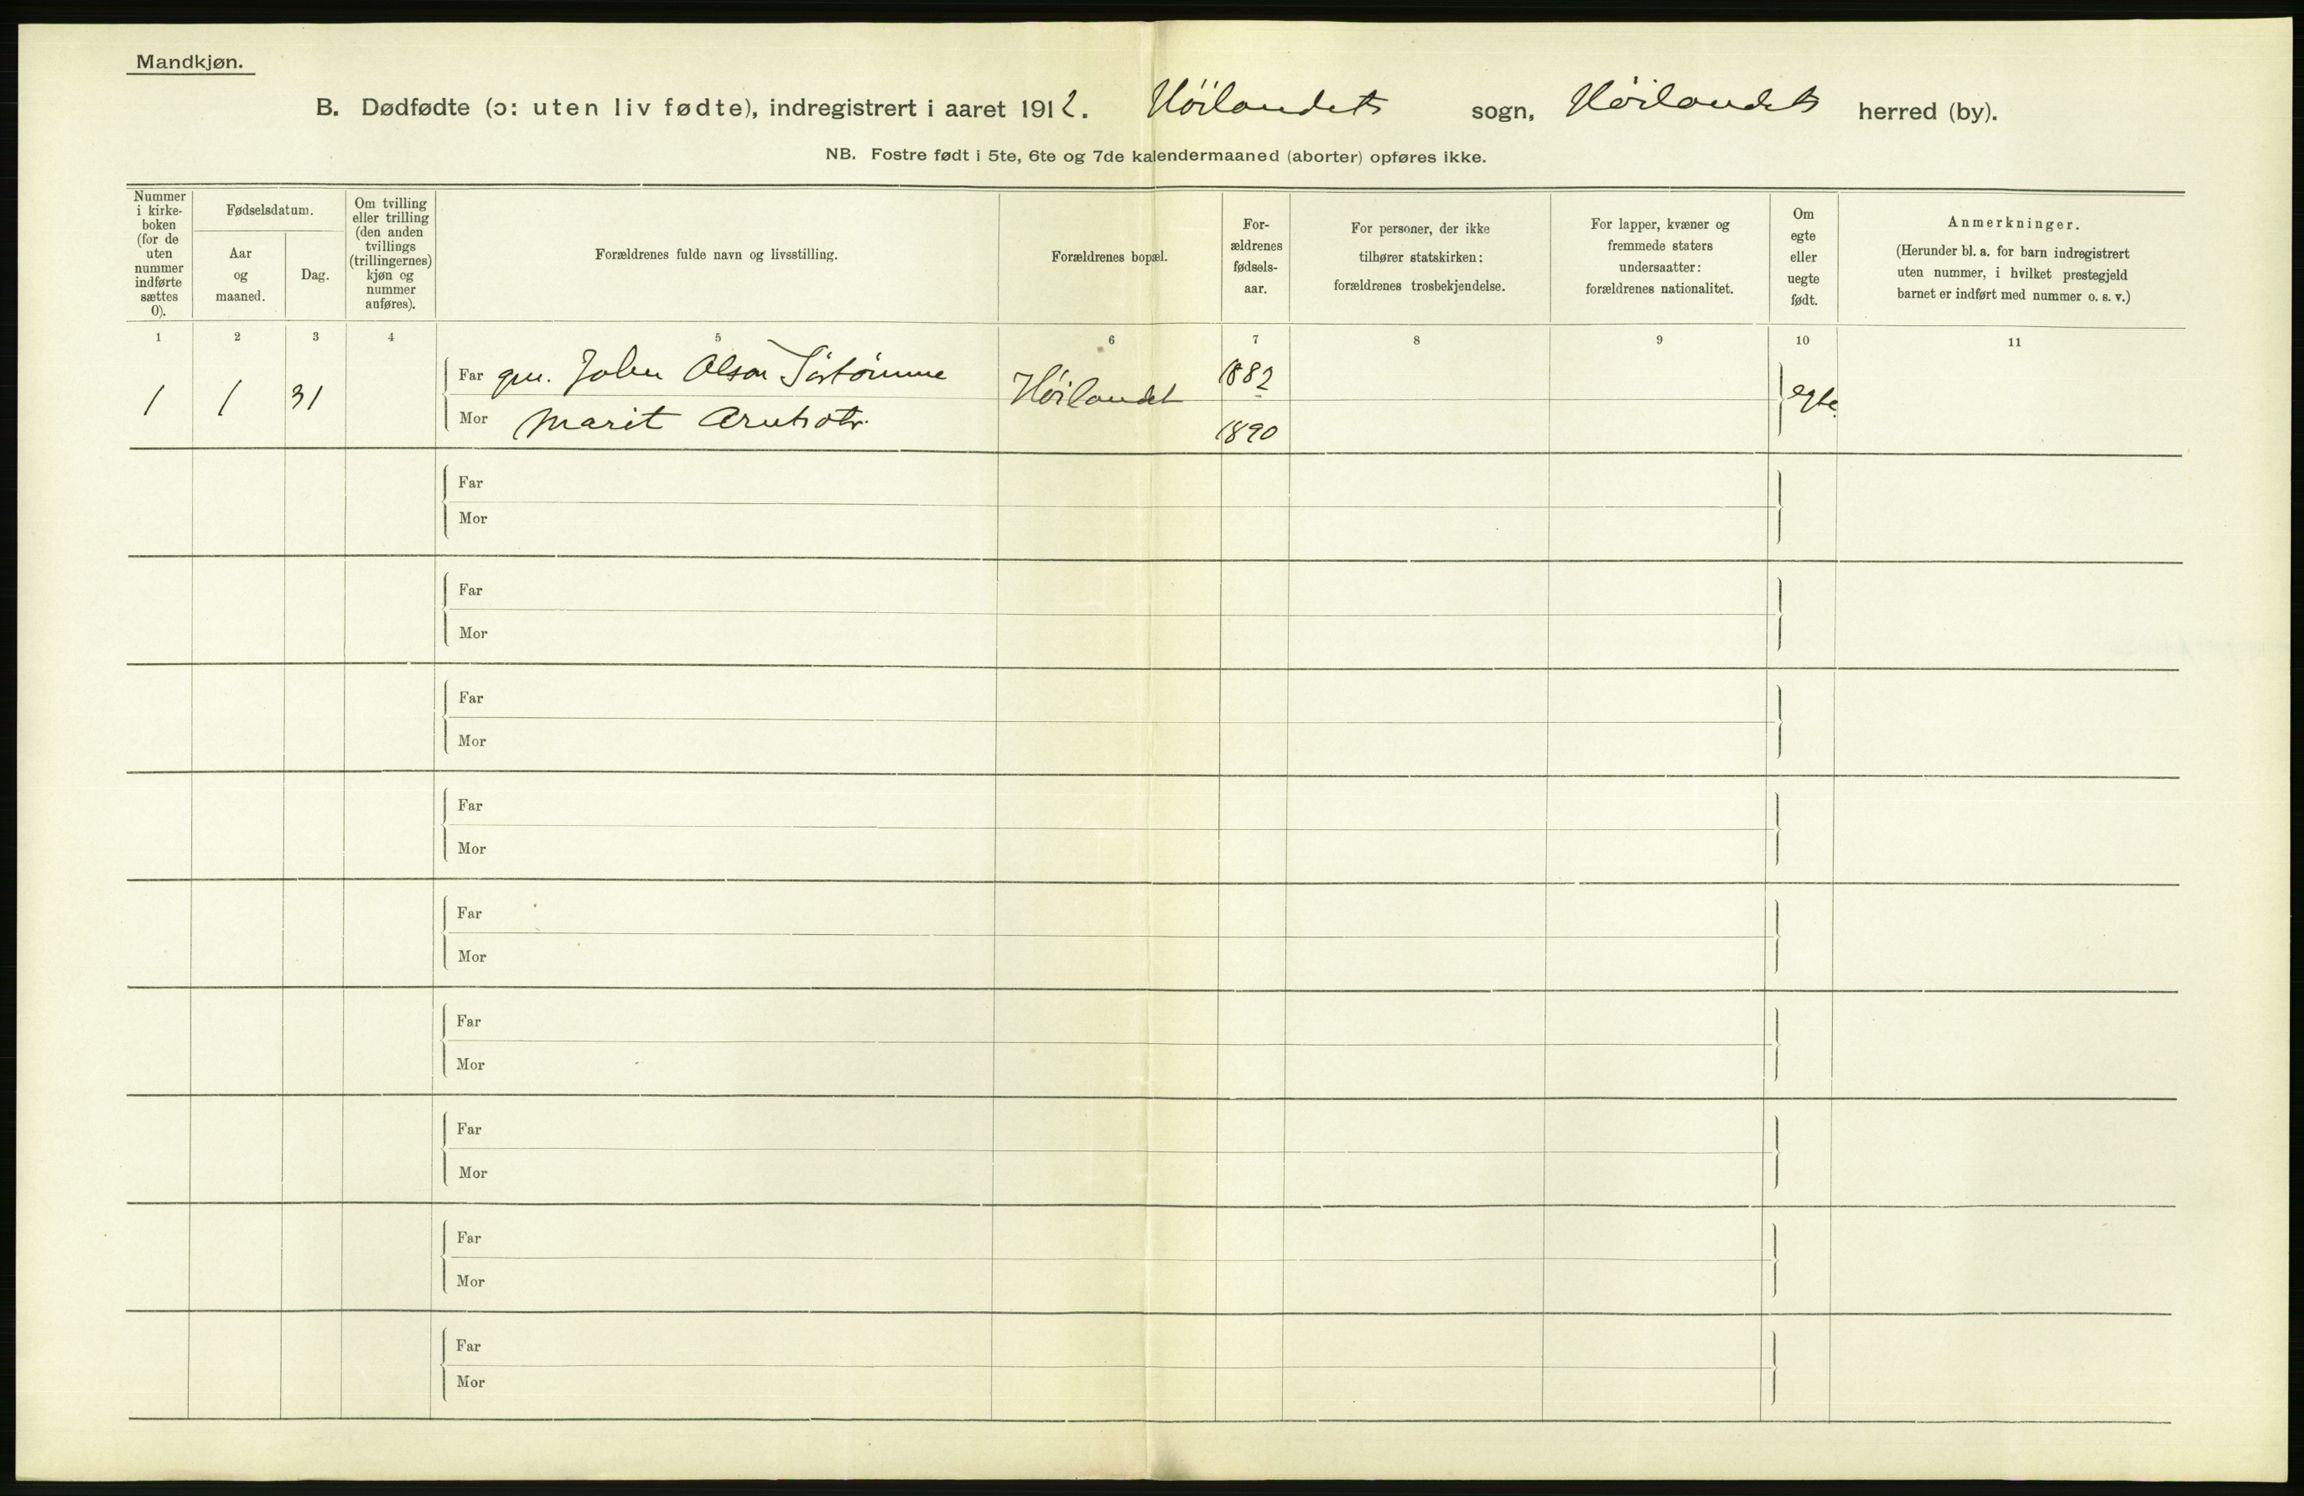 Mandkjøn.
B. Dødfødte (ɔ: uten liv fødte), indregistrert i aaret 1912. Høilandets sogn, Høilandets herred (by).
NB. Fostre født i 5te, 6te og 7de kalendermaaned (aborter) opføres ikke.
Nummer
i kirke-
boken
(for de
uten
nummer
indførte
sættes
0).
Fødselsdatum.
Aar
og
maaned.
Dag.
Om tvilling
eller trilling
(den anden
tvillings
(trillingernes)
kjøn og
nummer
anføres).
Forældrenes fulde navn og livsstilling.
Forældrenes bopæl.
For-
ældrenes
fødsels-
aar.
For personer, der ikke
tilhører statskirken:
forældrenes trosbekjendelse.
For lapper, kvæner og
fremmede staters
undersaatter:
forældrenes nationalitet.
Om
egte
eller
uegte
født.
Anmerkninger.
(Herunder bl. a. for barn indregistrert
uten nummer, i hvilket prestegjeld
barnet er indført med nummer o. s. v.)
1 2 3 4 5 6 7 8 9 10 11
Far gm. John Olsen 1882
1 1 31 Høilandet egte.
Mor Marit 1890
Far
Mor
Far
Mor
Far
Mor
Far
Mor
Far
Mor
Far
Mor
Far
Mor
Far
Mor
Far
Mor